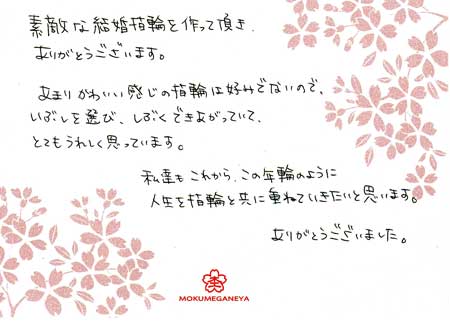 素敵な結婚指輪を作って頂き、
ありがとうございます。
あまりかわいい感じの指輪は好みでないので、
いぶしを選び、しぶくできあがっていて、
とてもうれしく思っています。
私達もこれから、この年輪のように
人生を指輪と共に重ねていきたいと思います。
ありがとうございました。
MOKUMEGANEYA